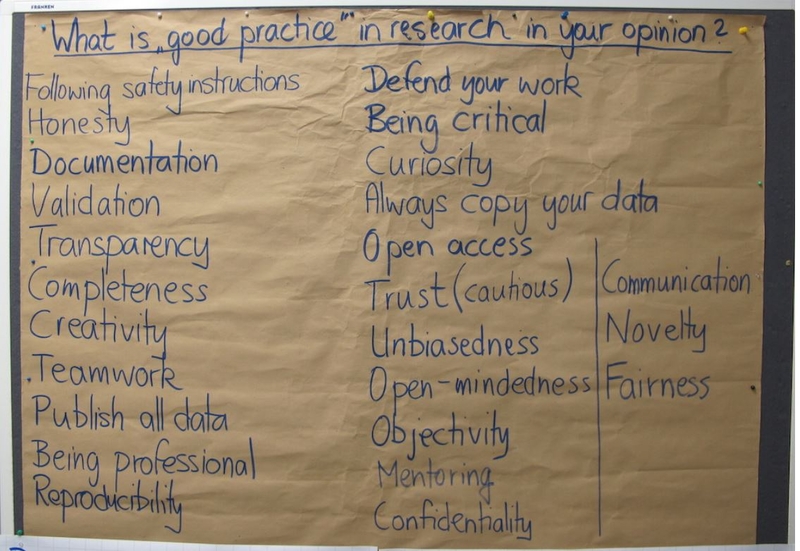 FRANKEN
What is „good practice" in research in your opinion?
Following safety instructions
Honesty
Documentation
Validation
Transparency
Completeness
Creativity
Teamwork
Publish all data
Being professional
Reproducibility
Defend your work
Being critical
Curiosity
Always copy your data
Open access
Trust (cautious)
Unbiasedness
Open-mindedness
Objectivity
Mentoring
Confidentiality
Communication
Novelty
Fairness